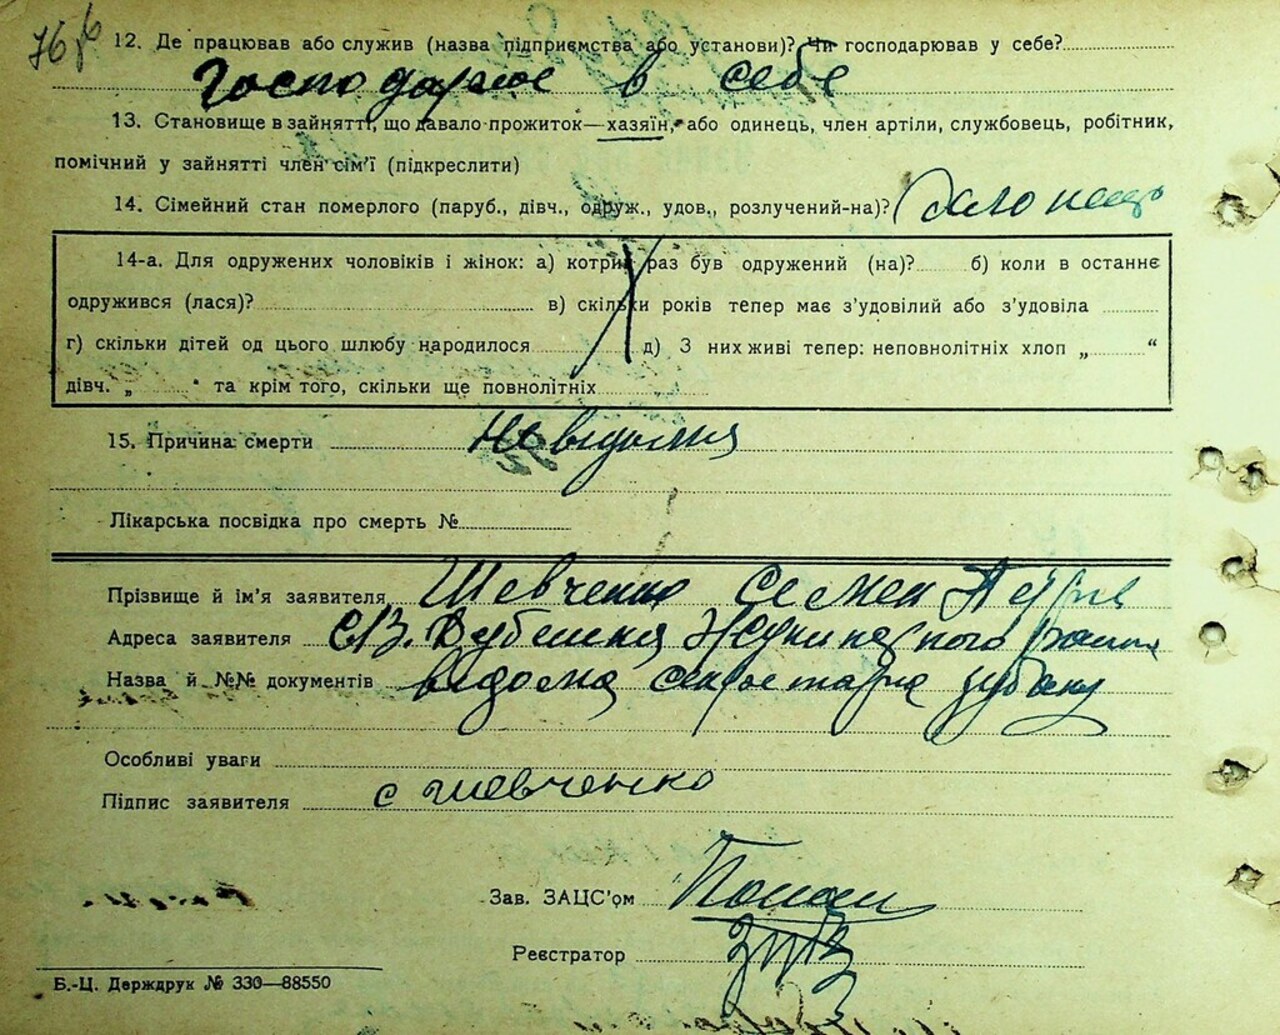 76
12. Де працював або служив (назва підприємства або установи)? Чи господарював у себе?
Господарює в себе
13. Становище в зайнятті, що давало прожиток—хазяїн, або одинець, член артіли, службовець, робітник,
помічний у зайнятті член сім'ї (підкреслити)
14. Сімейний стан померлого (паруб., дівч., одруж., удов., розлучений-на)?
14-а. Для одружених чоловіків і жінок: а) котрий раз був одружений (на)? б) коли в останнє
одружився (лася)? в) скільки років тепер має з'удовілий або з'удовіла
г) скільки дітей од цього шлюбу народилося д) З них живі тепер: неповнолітніх хлоп „ “
дівч. „ “ та крім того, скільки ще повнолітніх
15. Причина смерти Невідомя
Лікарська посвідка про смерть №
Прізвище й ім'я заявителя Шевченко Семен
Адреса заявителя
Назва й №№ документів відома секретарю
Особливі уваги
Підпис заявителя с шевченко
Зав. ЗАЦС'ом
Реєстратор
Б.-Ц. Держдрук № 330—88550